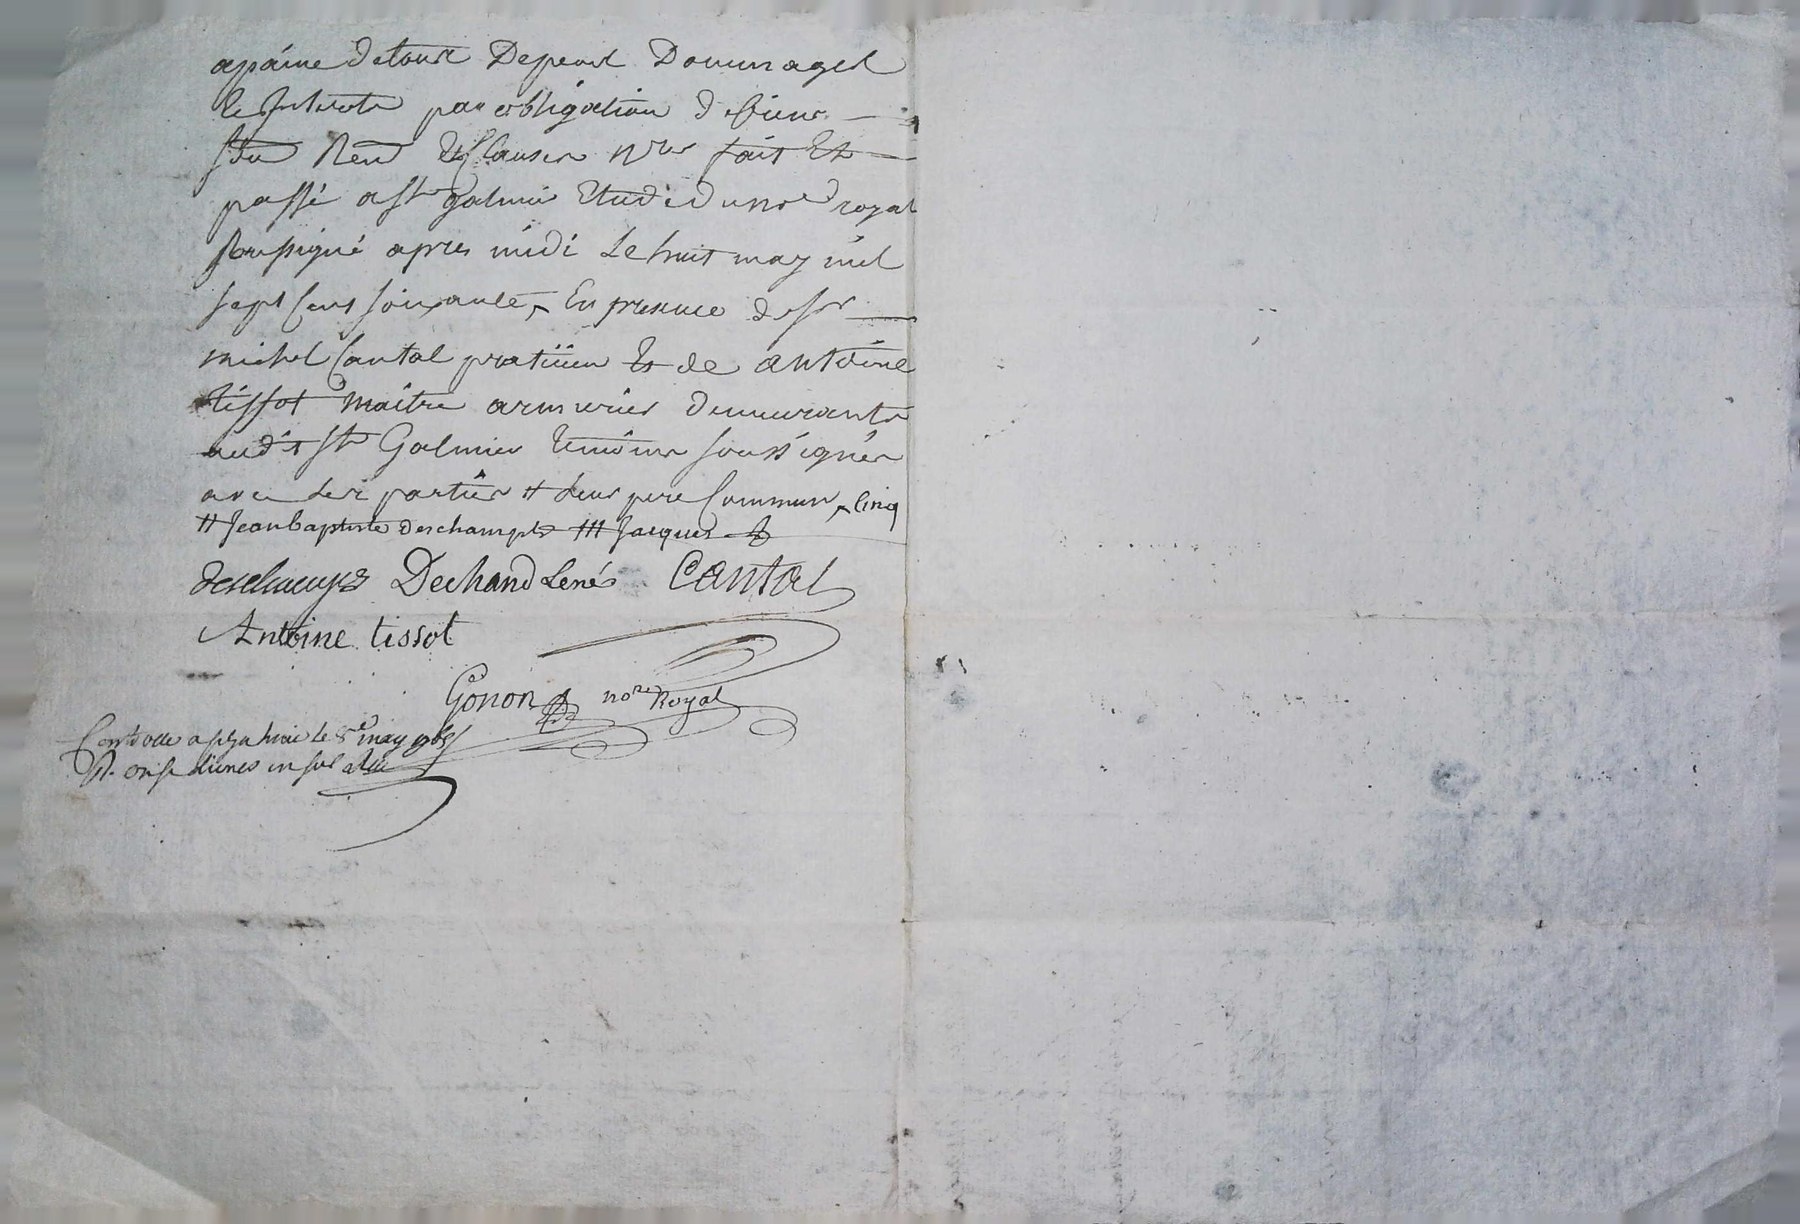 apaine de tous Depens Dommages
et Interets par obligation de biens
soum Renon Et Clauses N.res fait Et
passé a St galmier Etude du no.re royal
soussigné apres midi Le huit may mil
sept Cens soixante, En presence de sr
michel Cantal praticien Et de antoine
tissot maitre armurier demeurants
audit St Galmier temoins soussignés
avec les parties # leur pere Commun, Cinq
# Jean baptiste deschamps ### Jacques
deschamps Dechand Lené Cantal
Antoine tissot
Gonon no.re Royal
Controllé a le 8e may
R. onze livres